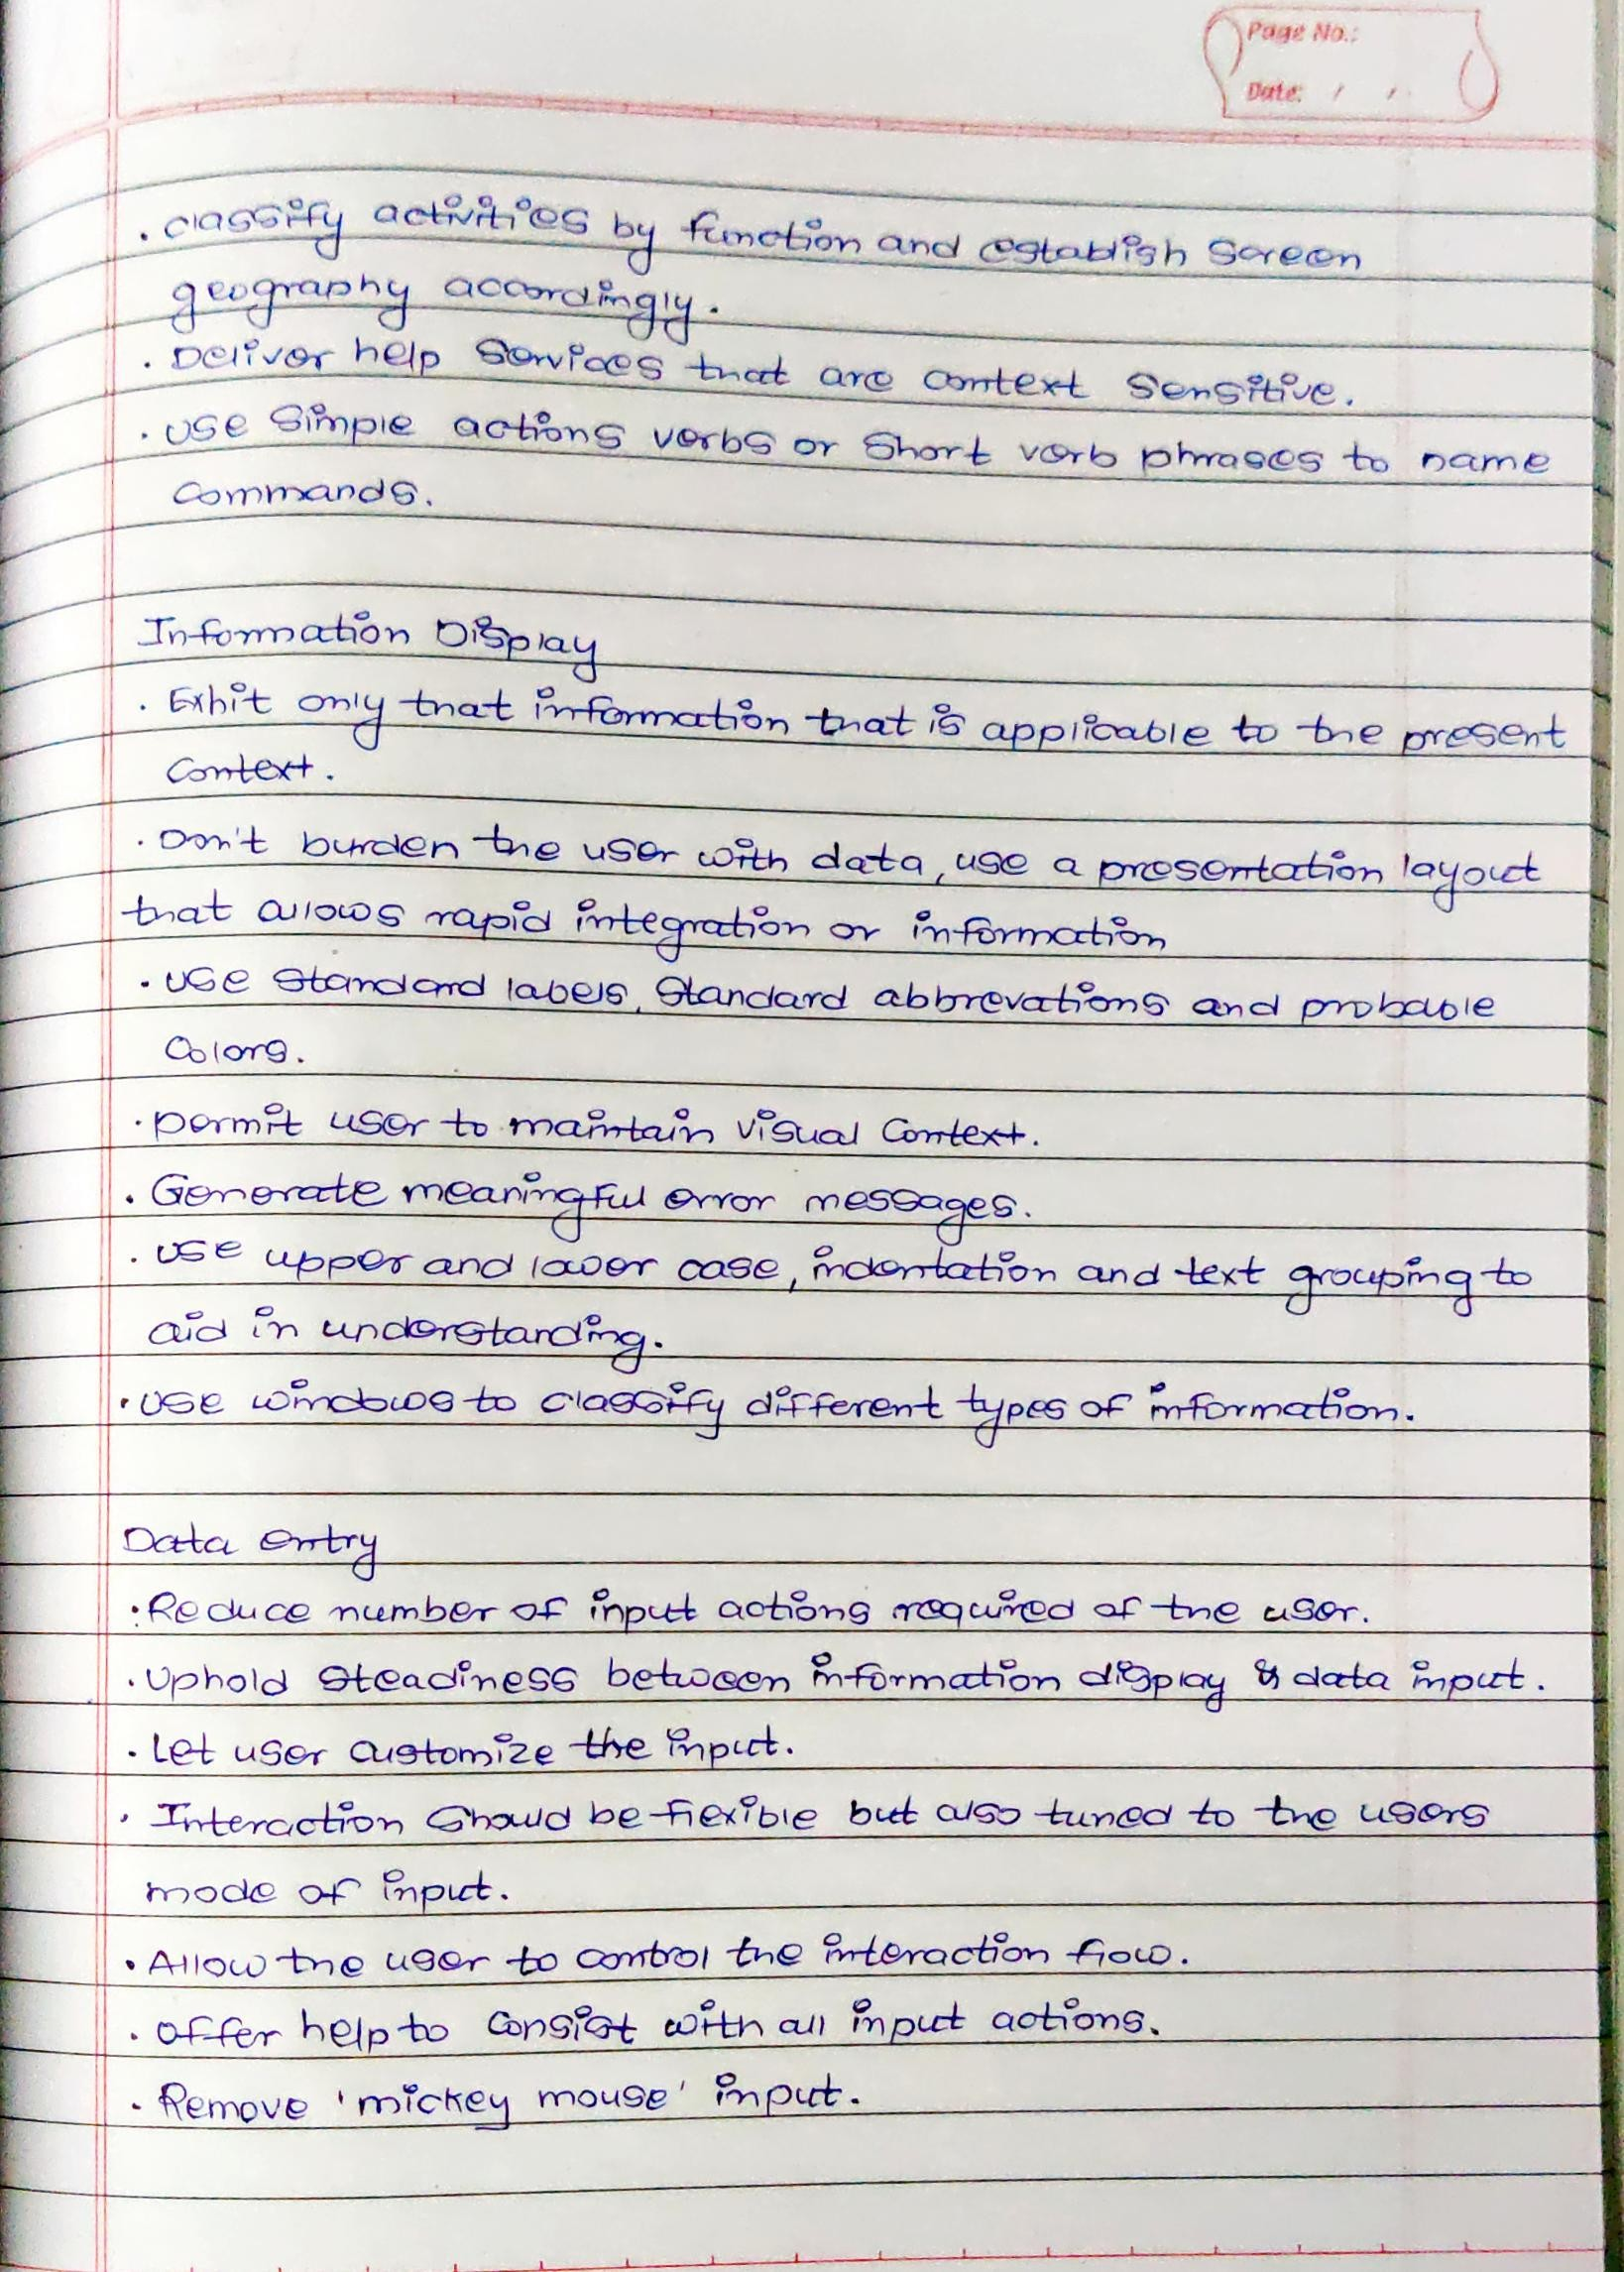 Page No.:
Date: / /
. classify activities by function and establish screen
geography accordingly.
. Deliver help services that are context sensitive.
. use simple actions verbs or short verb phrases to name
commands.
Information Display
. Exhit only that information that is applicable to the present
context.
. Don't burden the user with data, use a presentation layout
that allows rapid integration or information
. use standard labels, standard abbrevations and probable
colors.
. permit user to maintain visual context.
. Generate meaningful error messages.
. use upper and lower case, indentation and text grouping to
aid in understanding.
. use windows to classify different types of information.
Data entry
. Reduce number of input actions required of the user.
. Uphold steadiness between information display & data input.
. Let user customize the input.
. Interaction should be flexible but also tuned to the users
mode of input.
. Allow the user to control the interaction flow.
. offer help to consist with all input actions.
. Remove 'mickey mouse' input.